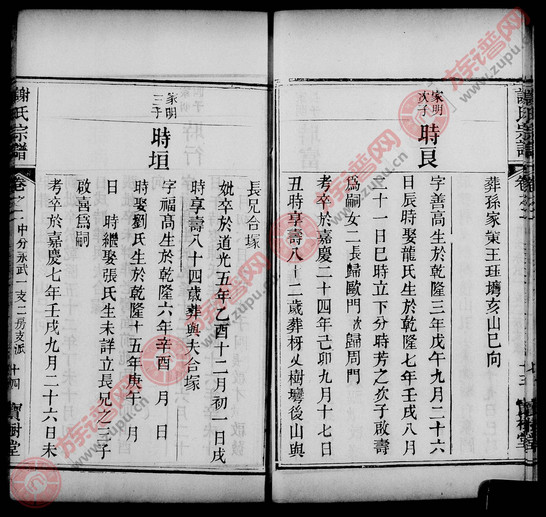 葬孫家寨王珏塆亥山巳向
家明次子
時良
字善高生於乾隆三年戊午九月二十六
日辰時娶龍氏生於乾隆七年壬戌八月
二十一日巳時立下分時芳之次子啟壽
為嗣女二長歸歐門次歸周門
考卒於嘉慶二十四年己卯九月十七日
丑時享壽八十二歲葬枒乂樹塆後山與
謝氏宗譜
卷之二
十三
寶樹堂
長兄合塚
妣卒於道光五年乙酉十二月初一日戌
時享壽八十四歲葬與夫合塚
家明三子
時垣
字福高生於乾隆六年辛酉 月 日
時娶劉氏生於乾隆十五年庚午 月
日 時繼娶張氏生未詳立長兄之三子
啟喜為嗣
考卒於嘉慶七年壬戌九月二十六日未
謝氏宗譜
卷之二
中分永武一支二房支派
十四
寶樹堂
族谱网
www.zupu.cn